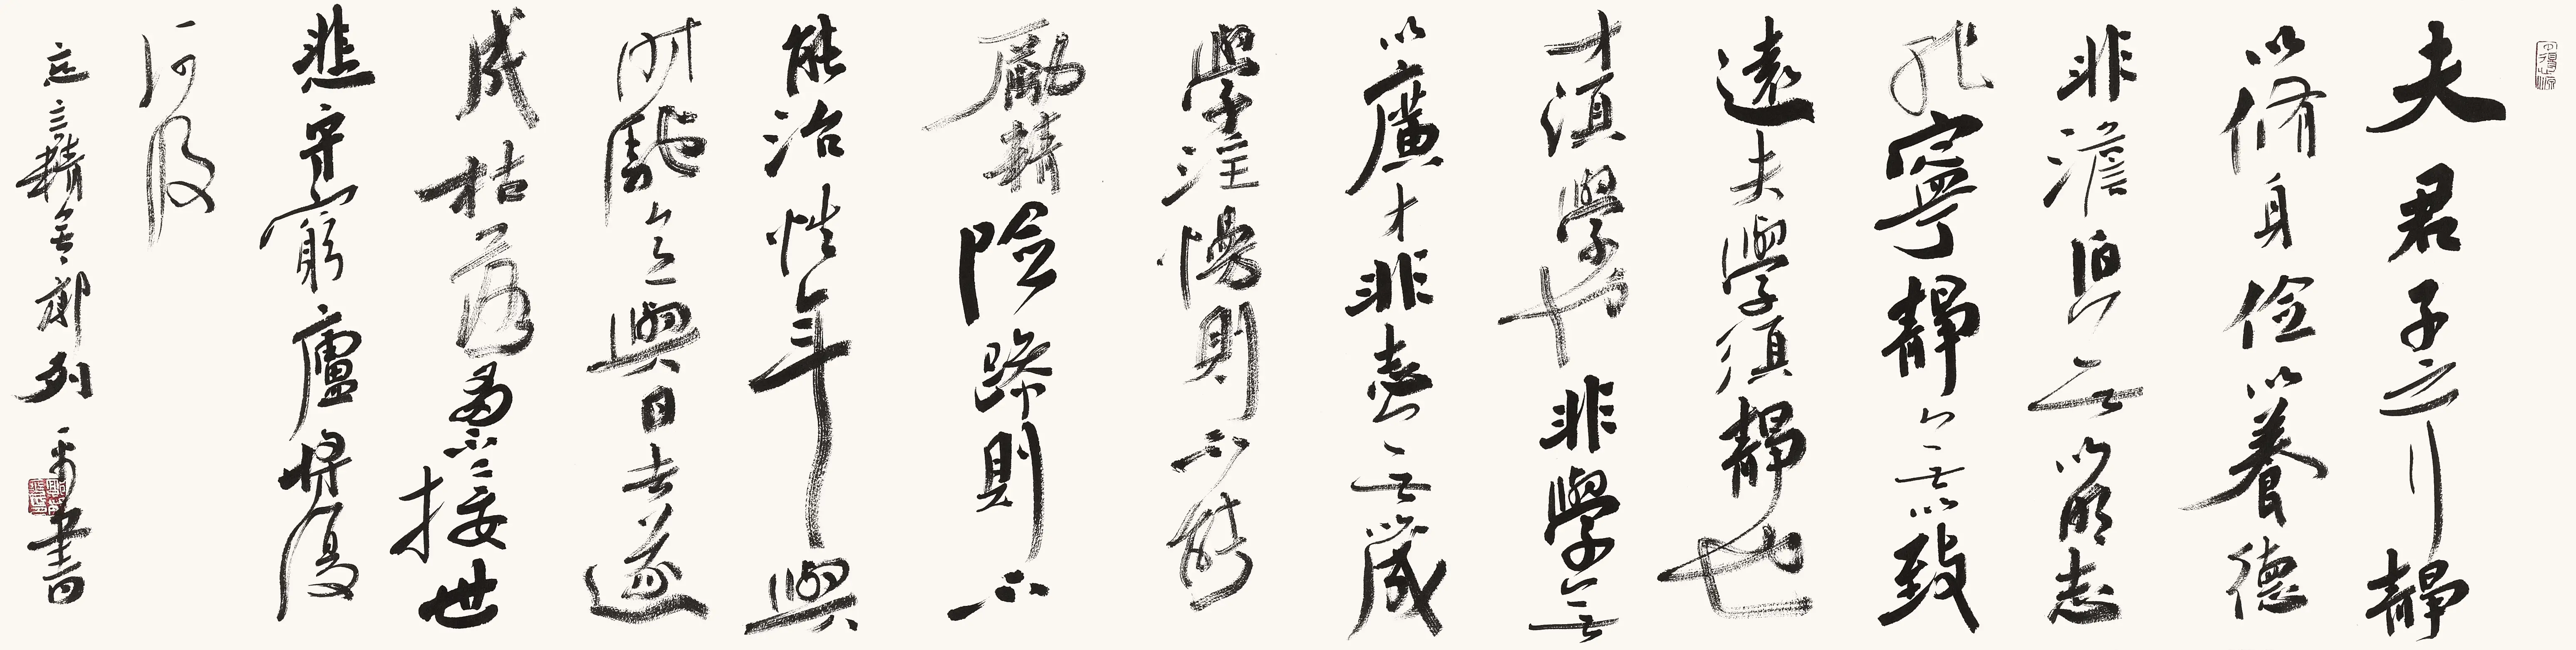 夫君子之行靜
以脩身儉以養德
非澹泊無以明志
非寧靜無以致
遠夫學須靜也
才須學也非學無
以廣才非志無以成
學淫慢則不能
勵精險躁則不
能治性年與
時馳意與日去遂
成枯落多不接世
悲守窮廬將復
何及
精舍鄭列書